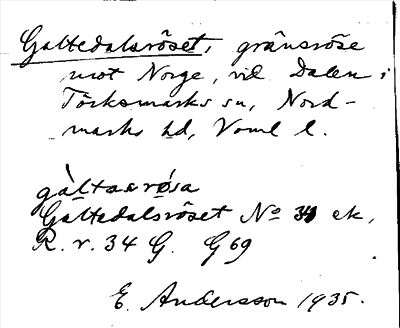 Galtedalsröset, gränsröse
mot Norge, vid Dalen i
Törksmarks sn, Nord-
marks hd, Vrml l.
gàltaεrø̀sa
Galtedalsröset No 34 ek,
R. r. 34 G. G 69
E. Andersson 1935.